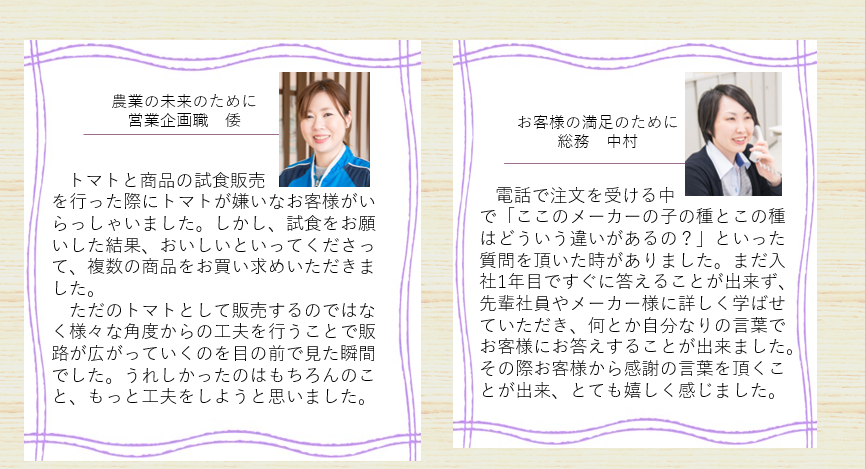 農業の未来のために
営業企画職　倭
　トマトと商品の試食販売
を行った際にトマトが嫌いなお客様がい
らっしゃいました。しかし、試食をお願
いした結果、おいしいといってくださっ
て、複数の商品をお買い求めいただきま
した。
　ただのトマトとして販売するのではな
く様々な角度からの工夫を行うことで販
路が広がっていくのを目の前で見た瞬間
でした。うれしかったのはもちろんのこ
と、もっと工夫をしようと思いました。
お客様の満足のために
総務　中村
　電話で注文を受ける中
で「ここのメーカーの子の種とこの種
はどういう違いがあるの？」といった
質問を頂いた時がありました。まだ入
社1年目ですぐに答えることが出来ず、
先輩社員やメーカー様に詳しく学ばせ
ていただき、何とか自分なりの言葉で
お客様にお答えすることが出来ました。
その際お客様から感謝の言葉を頂くこ
とが出来、とても嬉しく感じました。